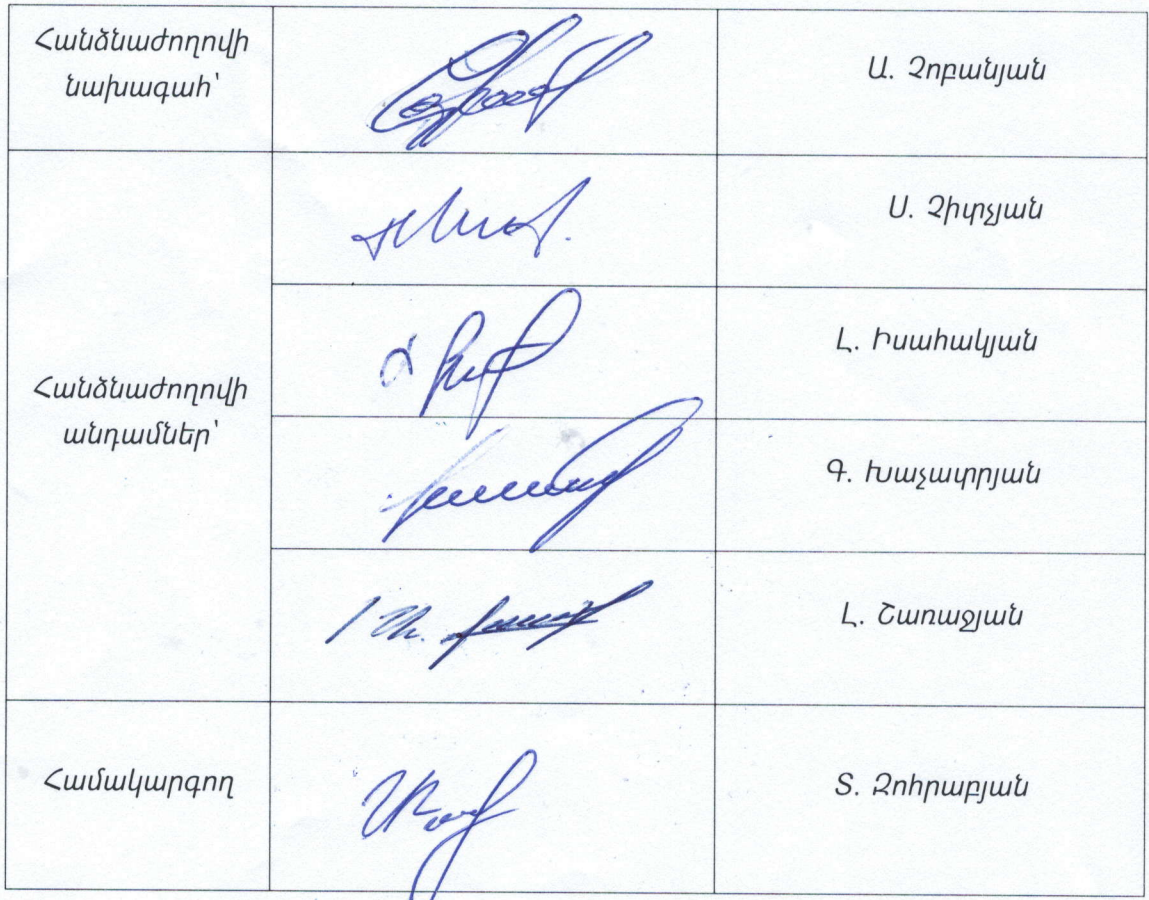 Հանձնաժողովի
նախագահ՝
Ա. Չոբանյան
Ս. Չիտչյան
Հանձնաժողովի
անդամներ՝
Լ. Իսահակյան
Գ. Խաչատրյան
Լ. Շառաջյան
Համակարգող
Տ. Զոհրաբյան